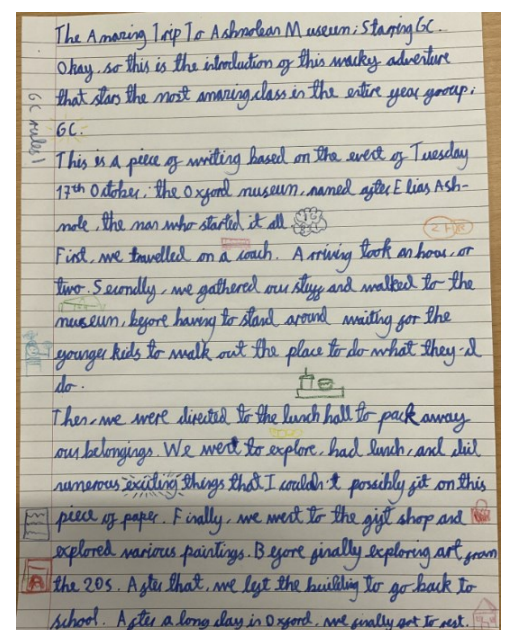 The Amazing Trip To Ashmolean Museum; Starring GC.
Okay, so this is the introduction of this wacky adventure
that stars the most amazing class in the entire year group;
GC.
GC rules!
This is a piece of writing based on the event of Tuesday
17th October; the Oxford museum, named after Elias Ash-
mole, the man who started it all
First, we travelled on a coach. Arriving took an hour, or
two. Secondly, we gathered our stuff and walked to the
museum, before having to stand around waiting for the
younger kids to walk out the place to do what they'd
do.
Then, we were directed to the lunch hall to pack away
our belongings. We went to explore, had lunch, and did
numerous exciting things that I couldn't possibly fit on this
piece of paper. Finally, we went to the gift shop and
explored various paintings. Before finally exploring art from
the 20s. After that, we left the building to go back to
school. After a long day in Oxford, we finally got to rest.